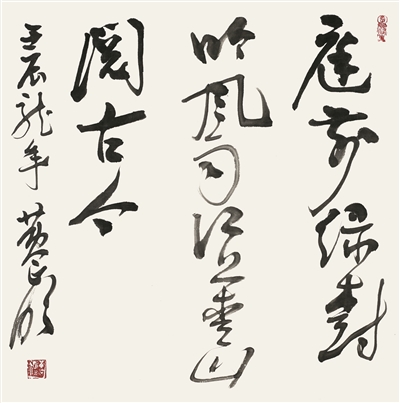 庭前绿树
吟风江上青山
阅古今
壬辰龙年